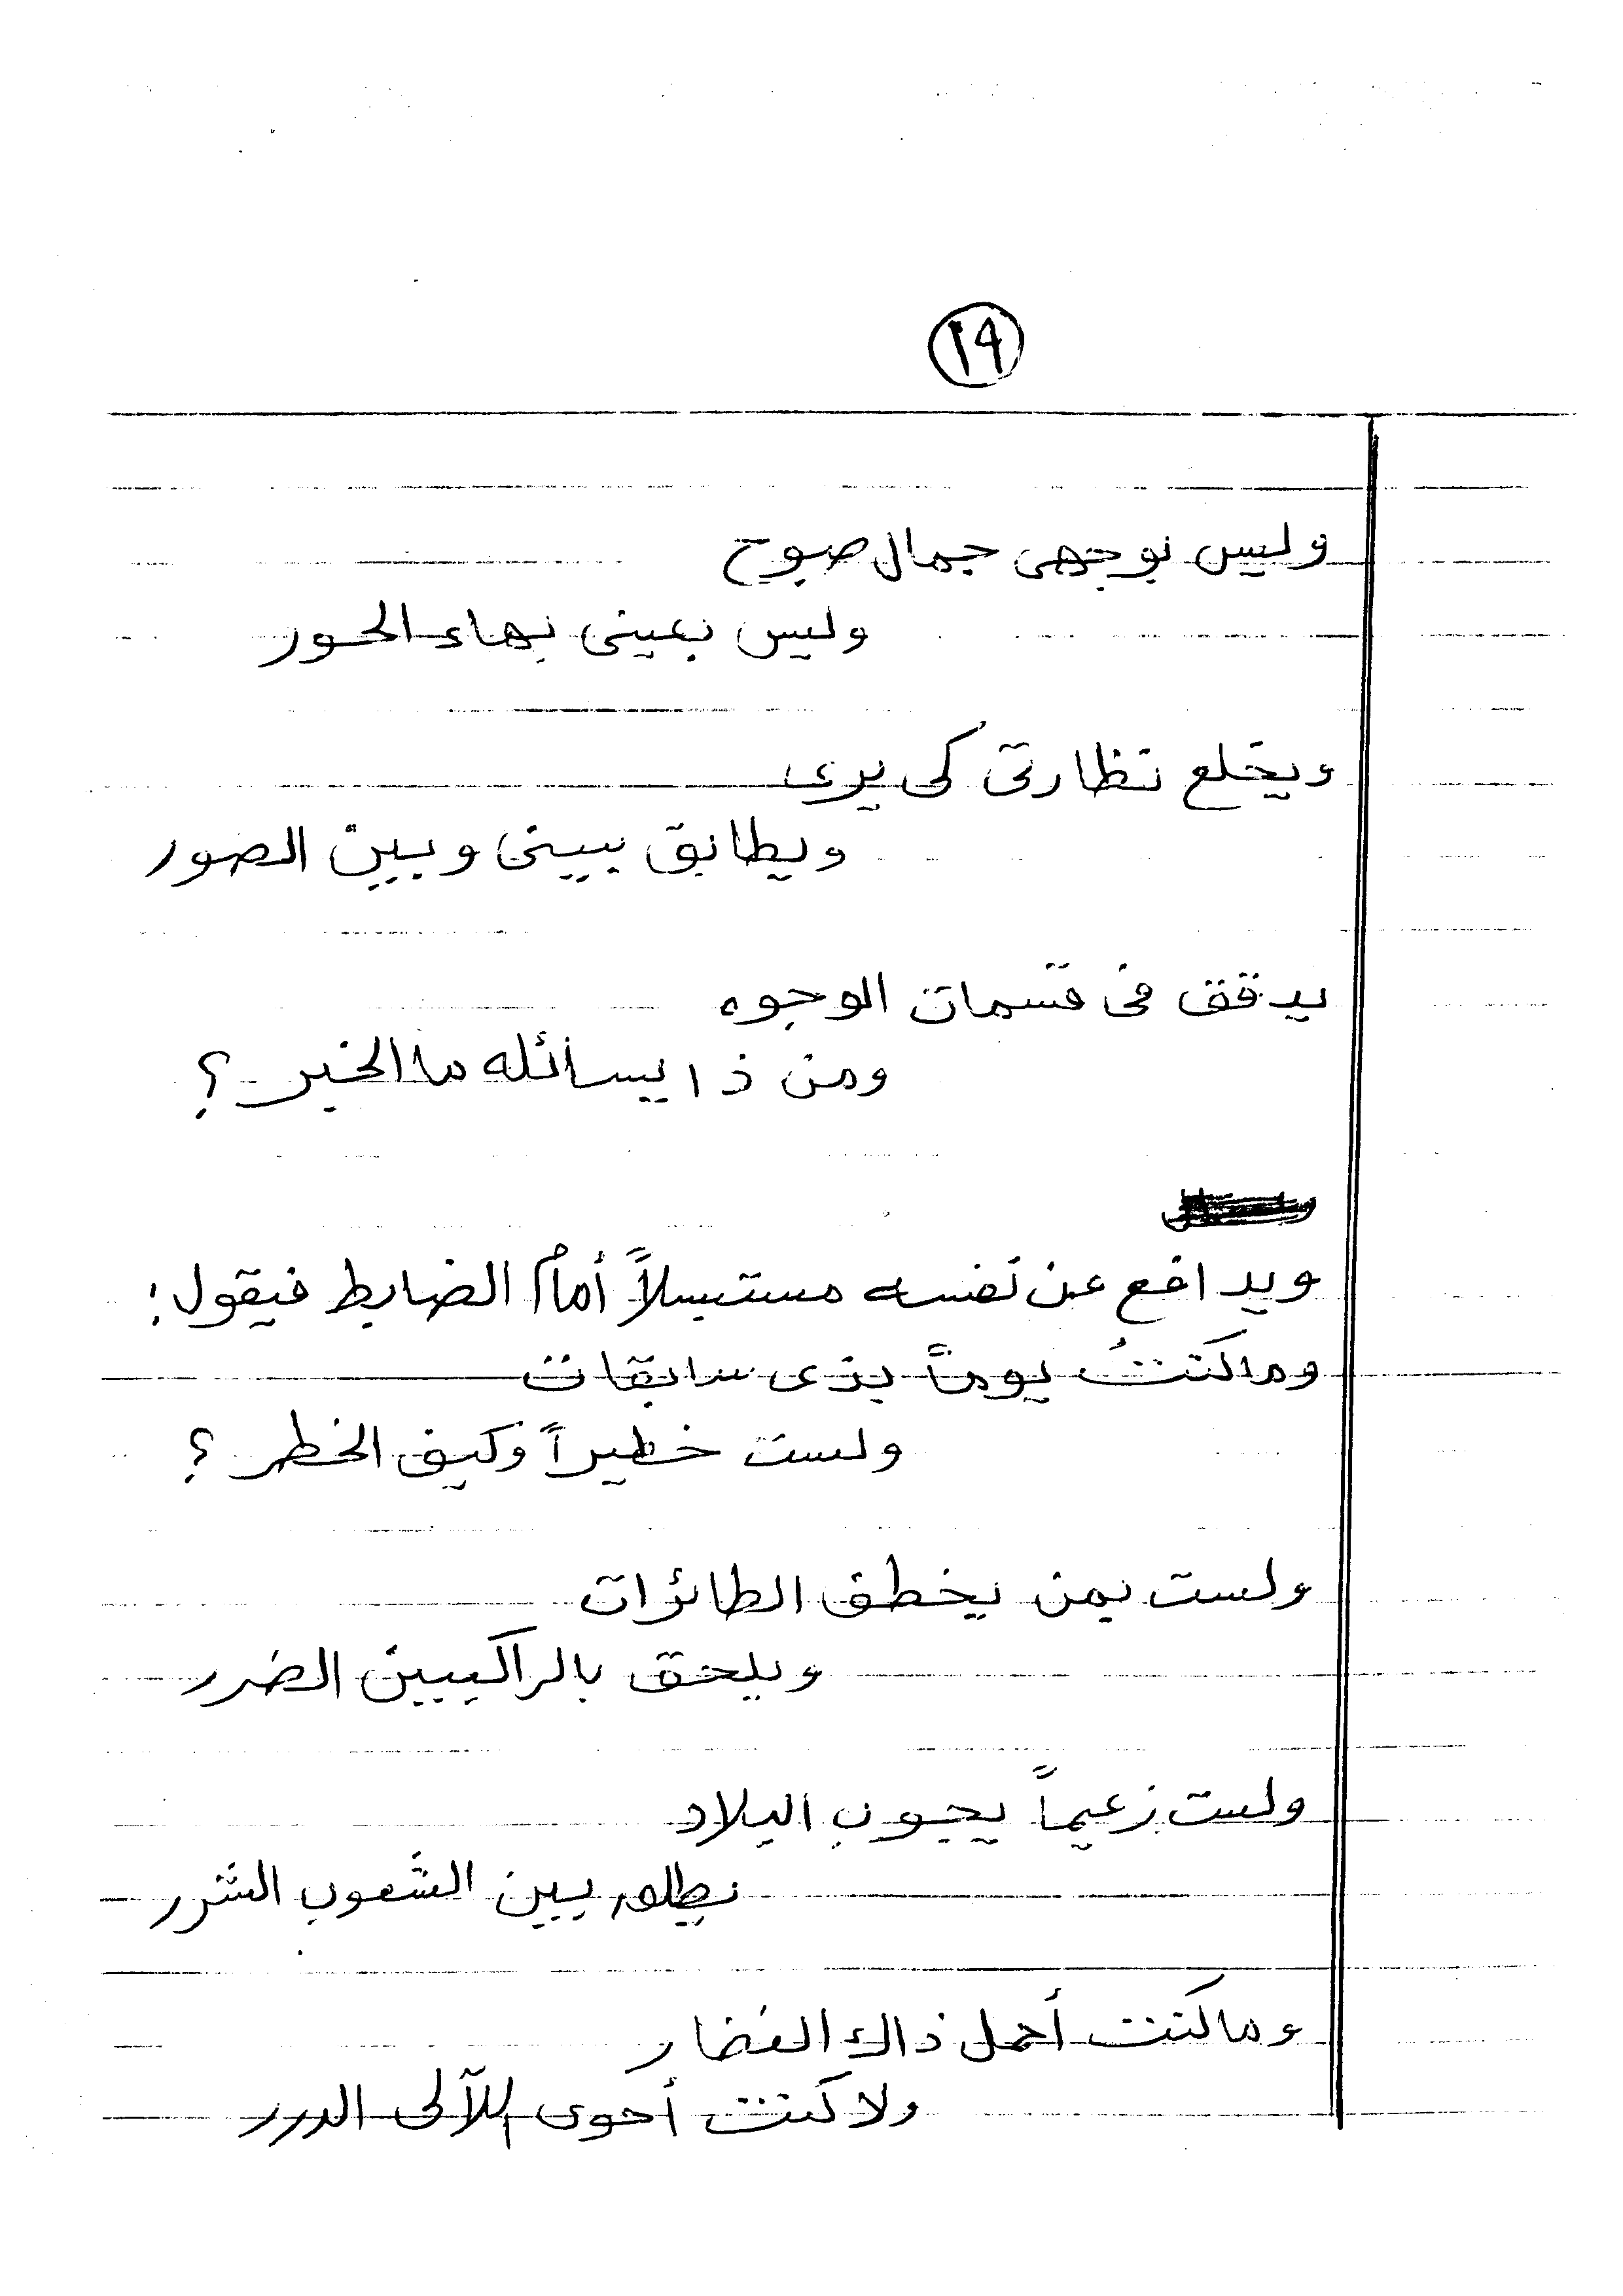 ١٩
وليس بوجهى جمال صبوح
وليس بعينى بهاء الحور
ويخلع نظارتى كى يرى
ويطابق بينى وبين الصور
يدقق فى قسمات الوجوه
ومن ذا يسائله ما الخبر ؟
ويدافع عن نفسه مستبسلاً أمام الضابط فيقول :
وما كنتُ يوماً بذى سابقات
ولست خطيراً وكيف الخطر ؟
ولست بمن يخطف الطائرات
ويلحق بالراكبين الضرر
ولست زعيماً يجوب البلاد
بين الشعوب الشرر
وما كنت أحمل ذاك النضار
ولا كنت أحوى اللآلى الدرر